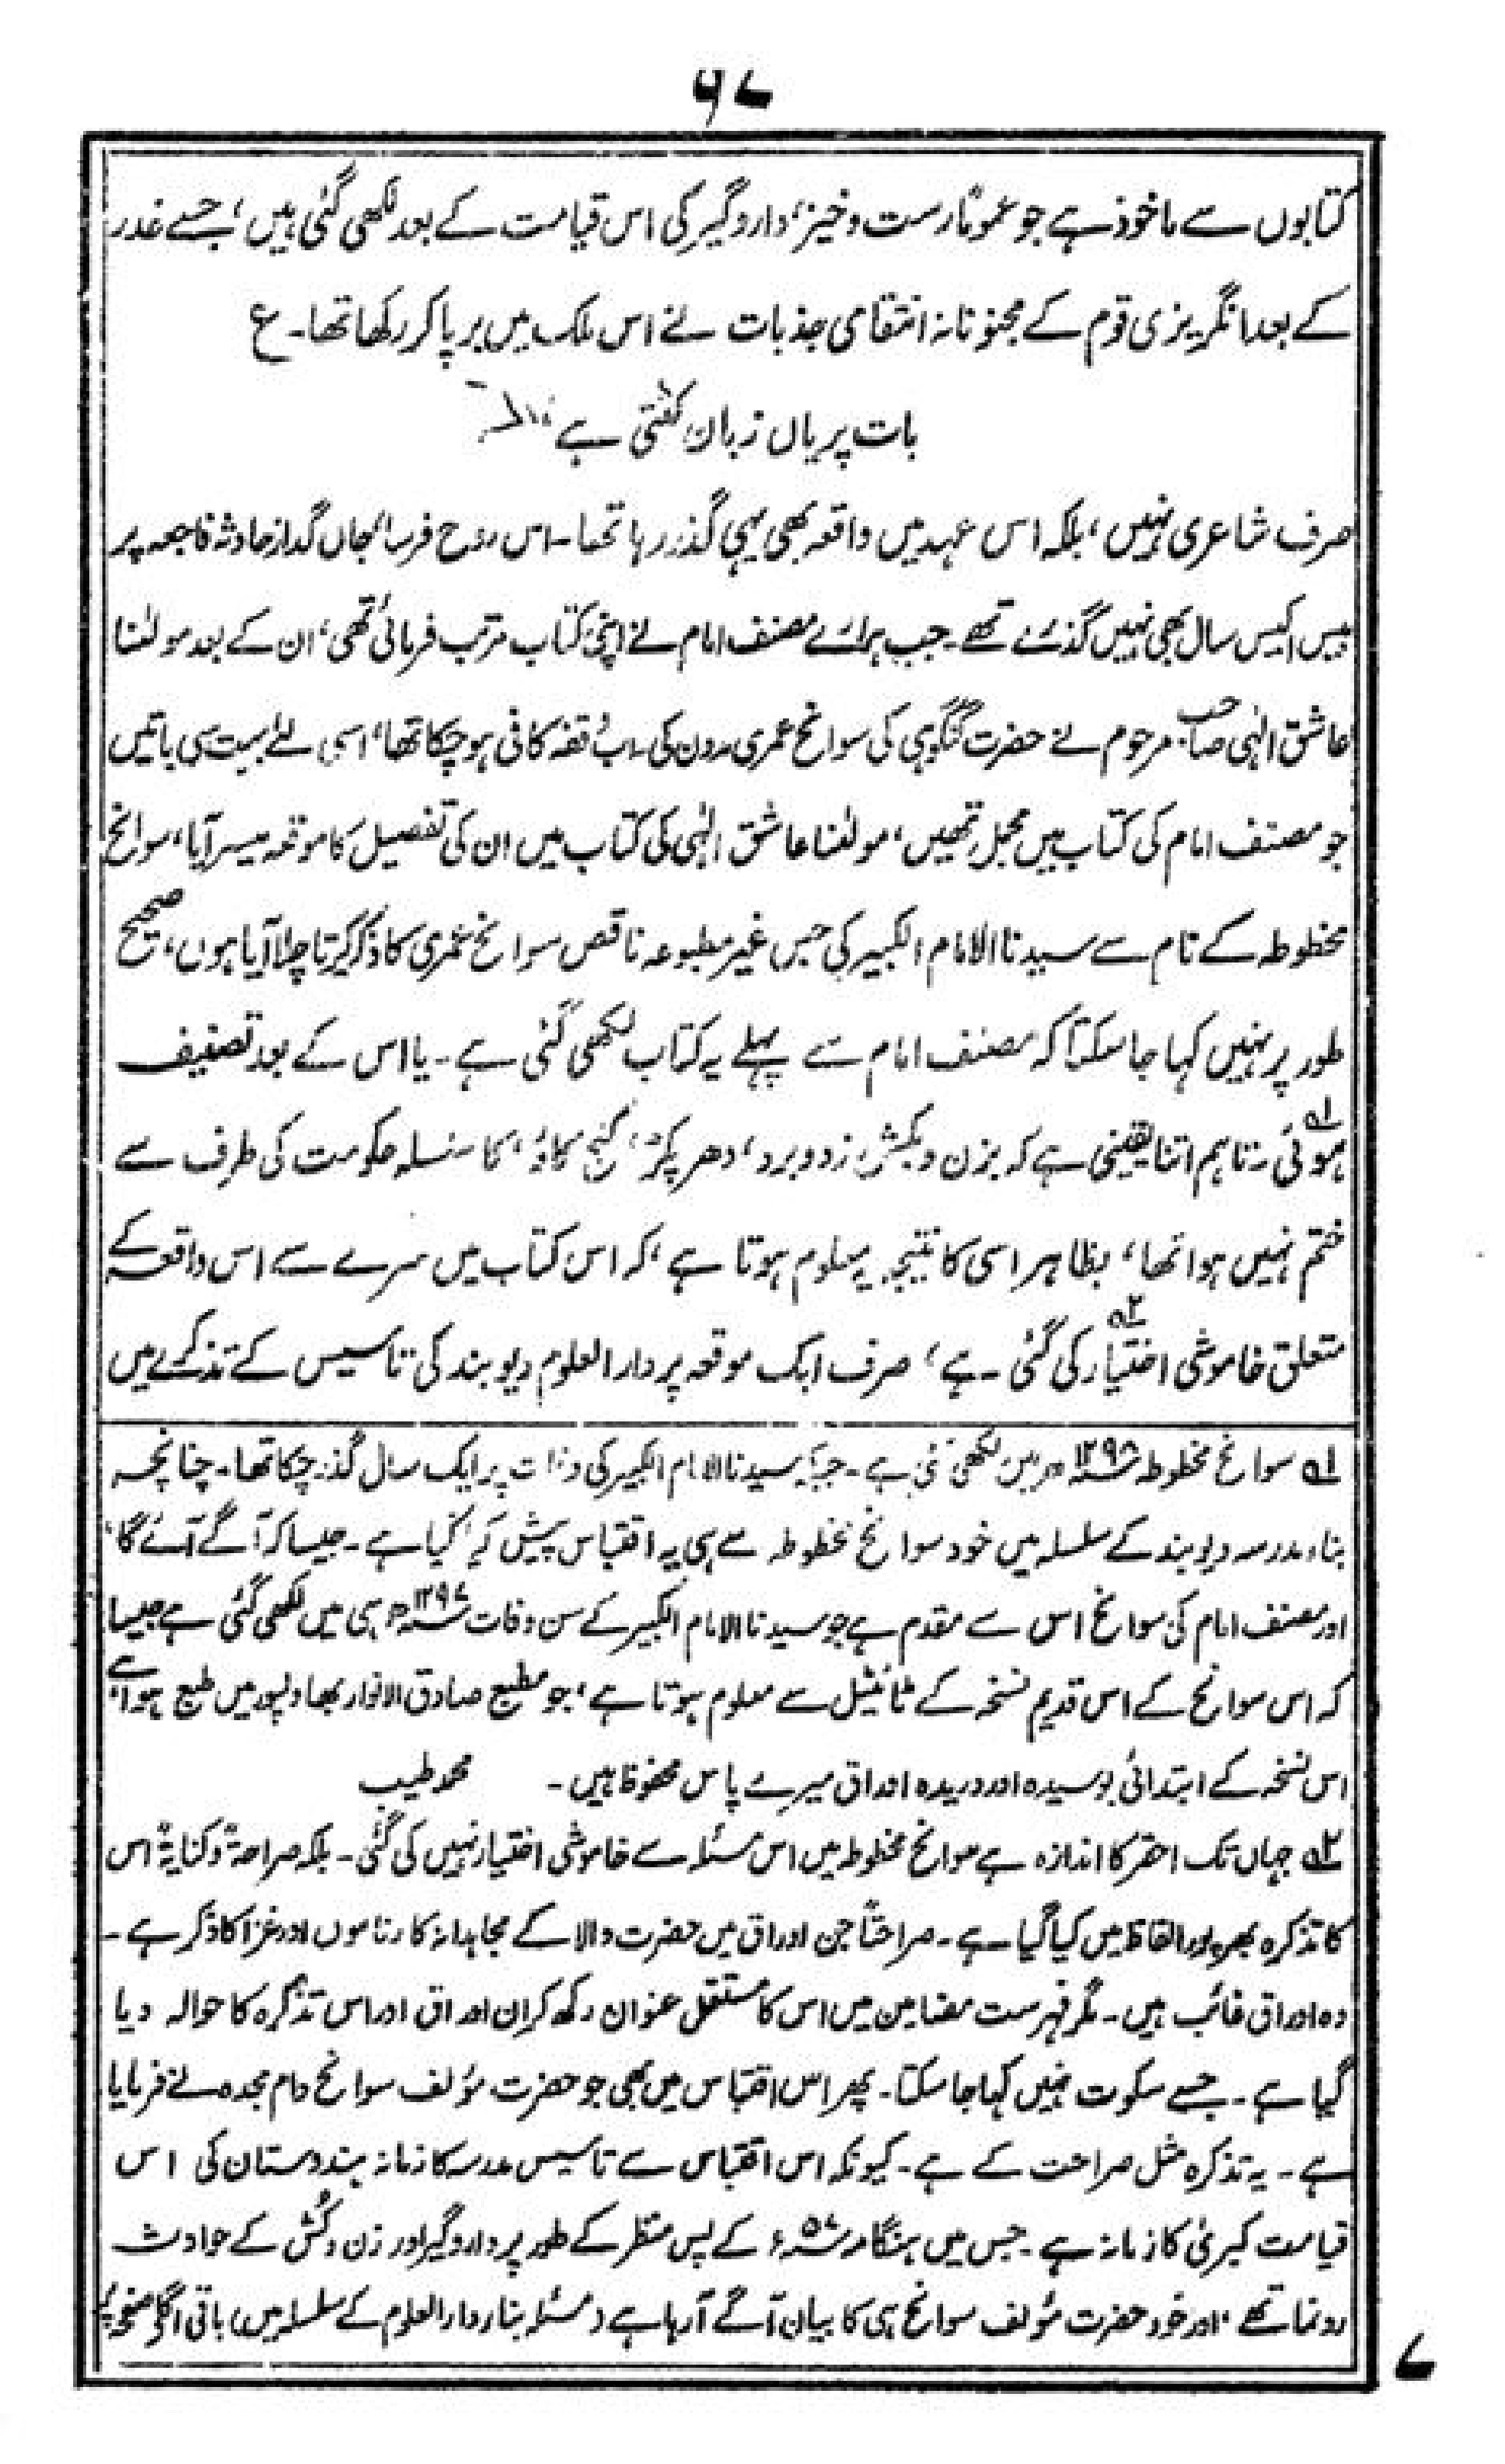 ۶۷
کتابوں سے ماخوذ ہے جو عموماً رست و خیز، داروگیر کی اس قیامت کے بعد لکھی گئی ہیں، جسے غدر
کے بعد انگریزی قوم کے مجنونانہ انتقامی جذبات نے اس ملک میں برپا کر رکھا تھا۔ ع
بات پر یاں زبان کٹتی ہے
صرف شاعری نہیں، بلکہ اس عہد میں واقعہ بھی یہی گذر رہا تھا۔ اس روح فرسا، جاں گداز حادثہ فاجعہ پر
بیس اکیس سال بھی نہیں گذرے تھے۔ جب ہمارے مصنف امام نے اپنی کتاب مرتب فرمائی تھی، ان کے بعد مولٰنا
عاشق الٰہی صاحب مرحوم نے حضرت گنگوہی کی سوانح عمری مدون کی۔ اب وقفہ کافی ہو چکا تھا، اسی لئے بہت سی باتیں
جو مصنف امام کی کتاب میں مجمل تھیں، مولٰنا عاشق الٰہی کی کتاب میں ان کی تفصیل کا موقعہ میسر آیا، سوانح
مخطوطہ کے نام سے سیدنا الامام الکبیر کی جس غیر مطبوعہ ناقص سوانح عمری کا ذکر کرتا چلا آیا ہوں، صحیح
طور پر نہیں کہا جا سکتا کہ مصنف امام سے پہلے یہ کتاب لکھی گئی ہے۔ یا اس کے بعد تصنیف
ہوئی ۱؎ تاہم اتنا یقینی ہے کہ بزن و بکش، زد و برد، دھر پکڑ، کا سلسلہ حکومت کی طرف سے
ختم نہیں ہوا تھا، بظاہر اسی کا نتیجہ یہ معلوم ہوتا ہے، کہ اس کتاب میں سرے سے اس واقعہ کے
متعلق خاموشی اختیار ۲؎ کی گئی ہے، صرف ایک موقعہ پر دارالعلوم دیوبند کی تاسیس کے تذکرے میں
۱؎ سوانح مخطوطہ ۱۲۹۸ھ میں لکھی گئی ہے۔ جبکہ سیدنا الامام الکبیر کی وفات پر ایک سال گذر چکا تھا۔ چنانچہ
بناء مدرسہ دیوبند کے سلسلہ میں خود سوانح مخطوطہ سے ہی یہ اقتباس پیش کیا گیا ہے۔ جیسا کہ آگے آئے گا،
اور مصنف امام کی سوانح اس سے مقدم ہے جو سیدنا الامام الکبیر کے سن وفات ۱۲۹۷ھ ہی میں لکھی گئی ہے جیسا
کہ اس سوانح کے اس قدیم نسخہ کے ٹائیٹل سے معلوم ہوتا ہے، جو مطبع صادق الانوار بھاولپور میں طبع ہوا ہے،
اس نسخہ کے ابتدائی بوسیدہ اور دریدہ اوراق میرے پاس محفوظ ہیں۔ محمد طیب
۲؎ جہاں تک احقر کا اندازہ ہے سوانح مخطوطہ میں اس مسئلہ سے خاموشی اختیار نہیں کی گئی۔ بلکہ صراحۃً و کنایۃً اس
کا تذکرہ بھرپور الفاظ میں کیا گیا ہے۔ صراحتاً جن اوراق میں حضرت والا کے مجاہدانہ کارناموں اور غزا کا ذکر ہے۔
وہ اوراق غائب ہیں۔ مگر فہرست مضامین میں اس کا مستقل عنوان رکھ کر ان اوراق اور اس تذکرہ کا حوالہ دیا
گیا ہے۔ جسے سکوت نہیں کہا جا سکتا۔ پھر اس اقتباس میں بھی جو حضرت مؤلف سوانح دام مجدہ نے فرمایا
ہے۔ یہ تذکرہ مثل صراحت کے ہے۔ کیونکہ اس اقتباس سے تاسیس مدرسہ کا زمانہ ہندوستان کی اس
قیامت کبریٰ کا زمانہ ہے۔ جس میں ہنگامہ ۵۷ء کے پس منظر کے طور پر داروگیر اور زن و کُش کے حوادث
رونما تھے، اور خود حضرت مؤلف سوانح ہی کا بیان آگے آ رہا ہے (مسئلہ بناء دارالعلوم کے سلسلہ میں) باقی اگلے صفحہ پر
۷